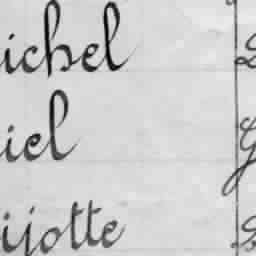 ichel
iel
ijotte